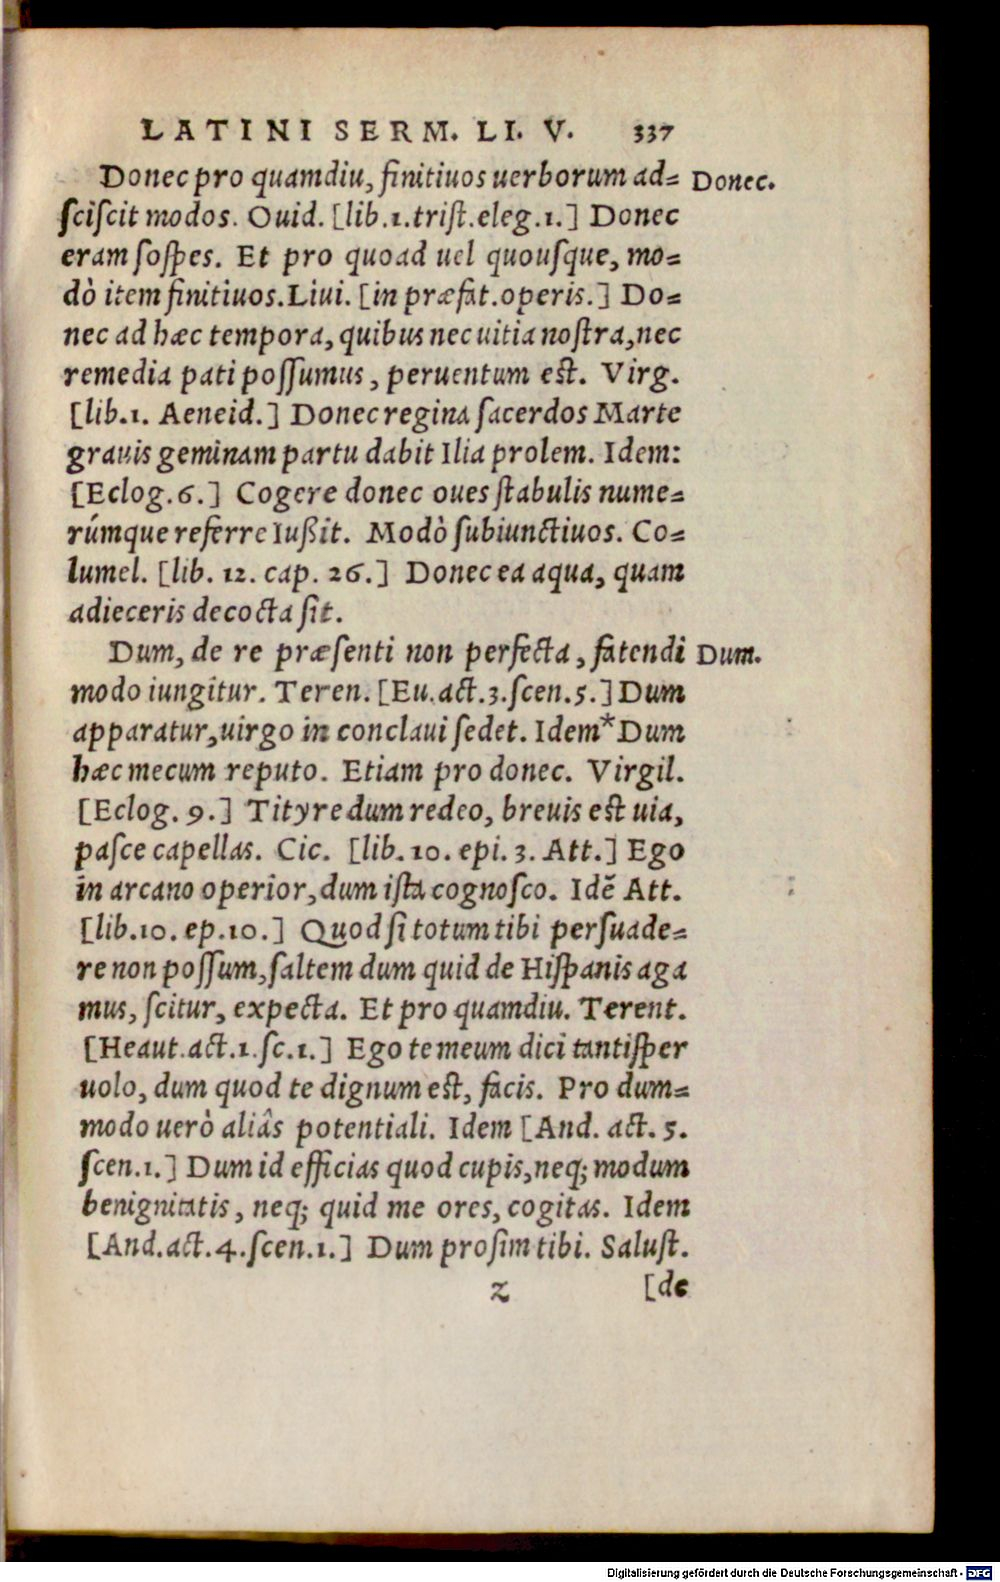 LATINI SERM. LI. V. 337
Donec pro quamdiu, finitiuos uerborum ad= Donec.
ſciſcit modos. Ouid. [lib.1.triſt.eleg.1.] Donec
eram ſoſpes. Et pro quoad uel quouſque, mo=
dò item finitiuos. Liui. [in præfat.operis.] Do=
nec ad hæc tempora, quibus nec uitia noſtra, nec
remedia pati poſſumus, peruentum eſt. Virg.
[lib.1. Aeneid.] Donec regina ſacerdos Marte
grauis geminam partu dabit Ilia prolem. Idem:
[Eclog.6.] Cogere donec oues ſtabulis nume=
rúmque referre Iußit. Modò ſubiunctiuos. Co=
lumel. [lib. 12. cap. 26.] Donec ea aqua, quam
adieceris decocta ſit.
Dum, de re præſenti non perfecta, fatendi Dum.
modo iungitur. Teren. [Eu.act.3.ſcen.5.] Dum
apparatur, uirgo in conclaui ſedet. Idem* Dum
hæc mecum reputo. Etiam pro donec. Virgil.
[Eclog. 9.] Tityre dum redeo, breuis eſt uia,
paſce capellas. Cic. [lib.10. epi.3. Att.] Ego
in arcano operior, dum iſta cognoſco. Idẽ Att.
[lib.10. ep.10.] Quod ſi totum tibi perſuade=
re non poſſum, ſaltem dum quid de Hiſpanis aga
mus, ſcitur, expecta. Et pro quamdiu. Terent.
[Heaut.act.1.ſc.1.] Ego te meum dici tantiſper
uolo, dum quod te dignum eſt, facis. Pro dum=
modo uerò aliâs potentiali. Idem [And. act. 5.
ſcen.1.] Dum id efficias quod cupis, neq; modum
benignitatis, neq; quid me ores, cogitas. Idem
[And.act.4.ſcen.1.] Dum proſim tibi. Saluſt.
z [de
Digitalisierung gefördert durch die Deutsche Forschungsgemeinschaft - DFG